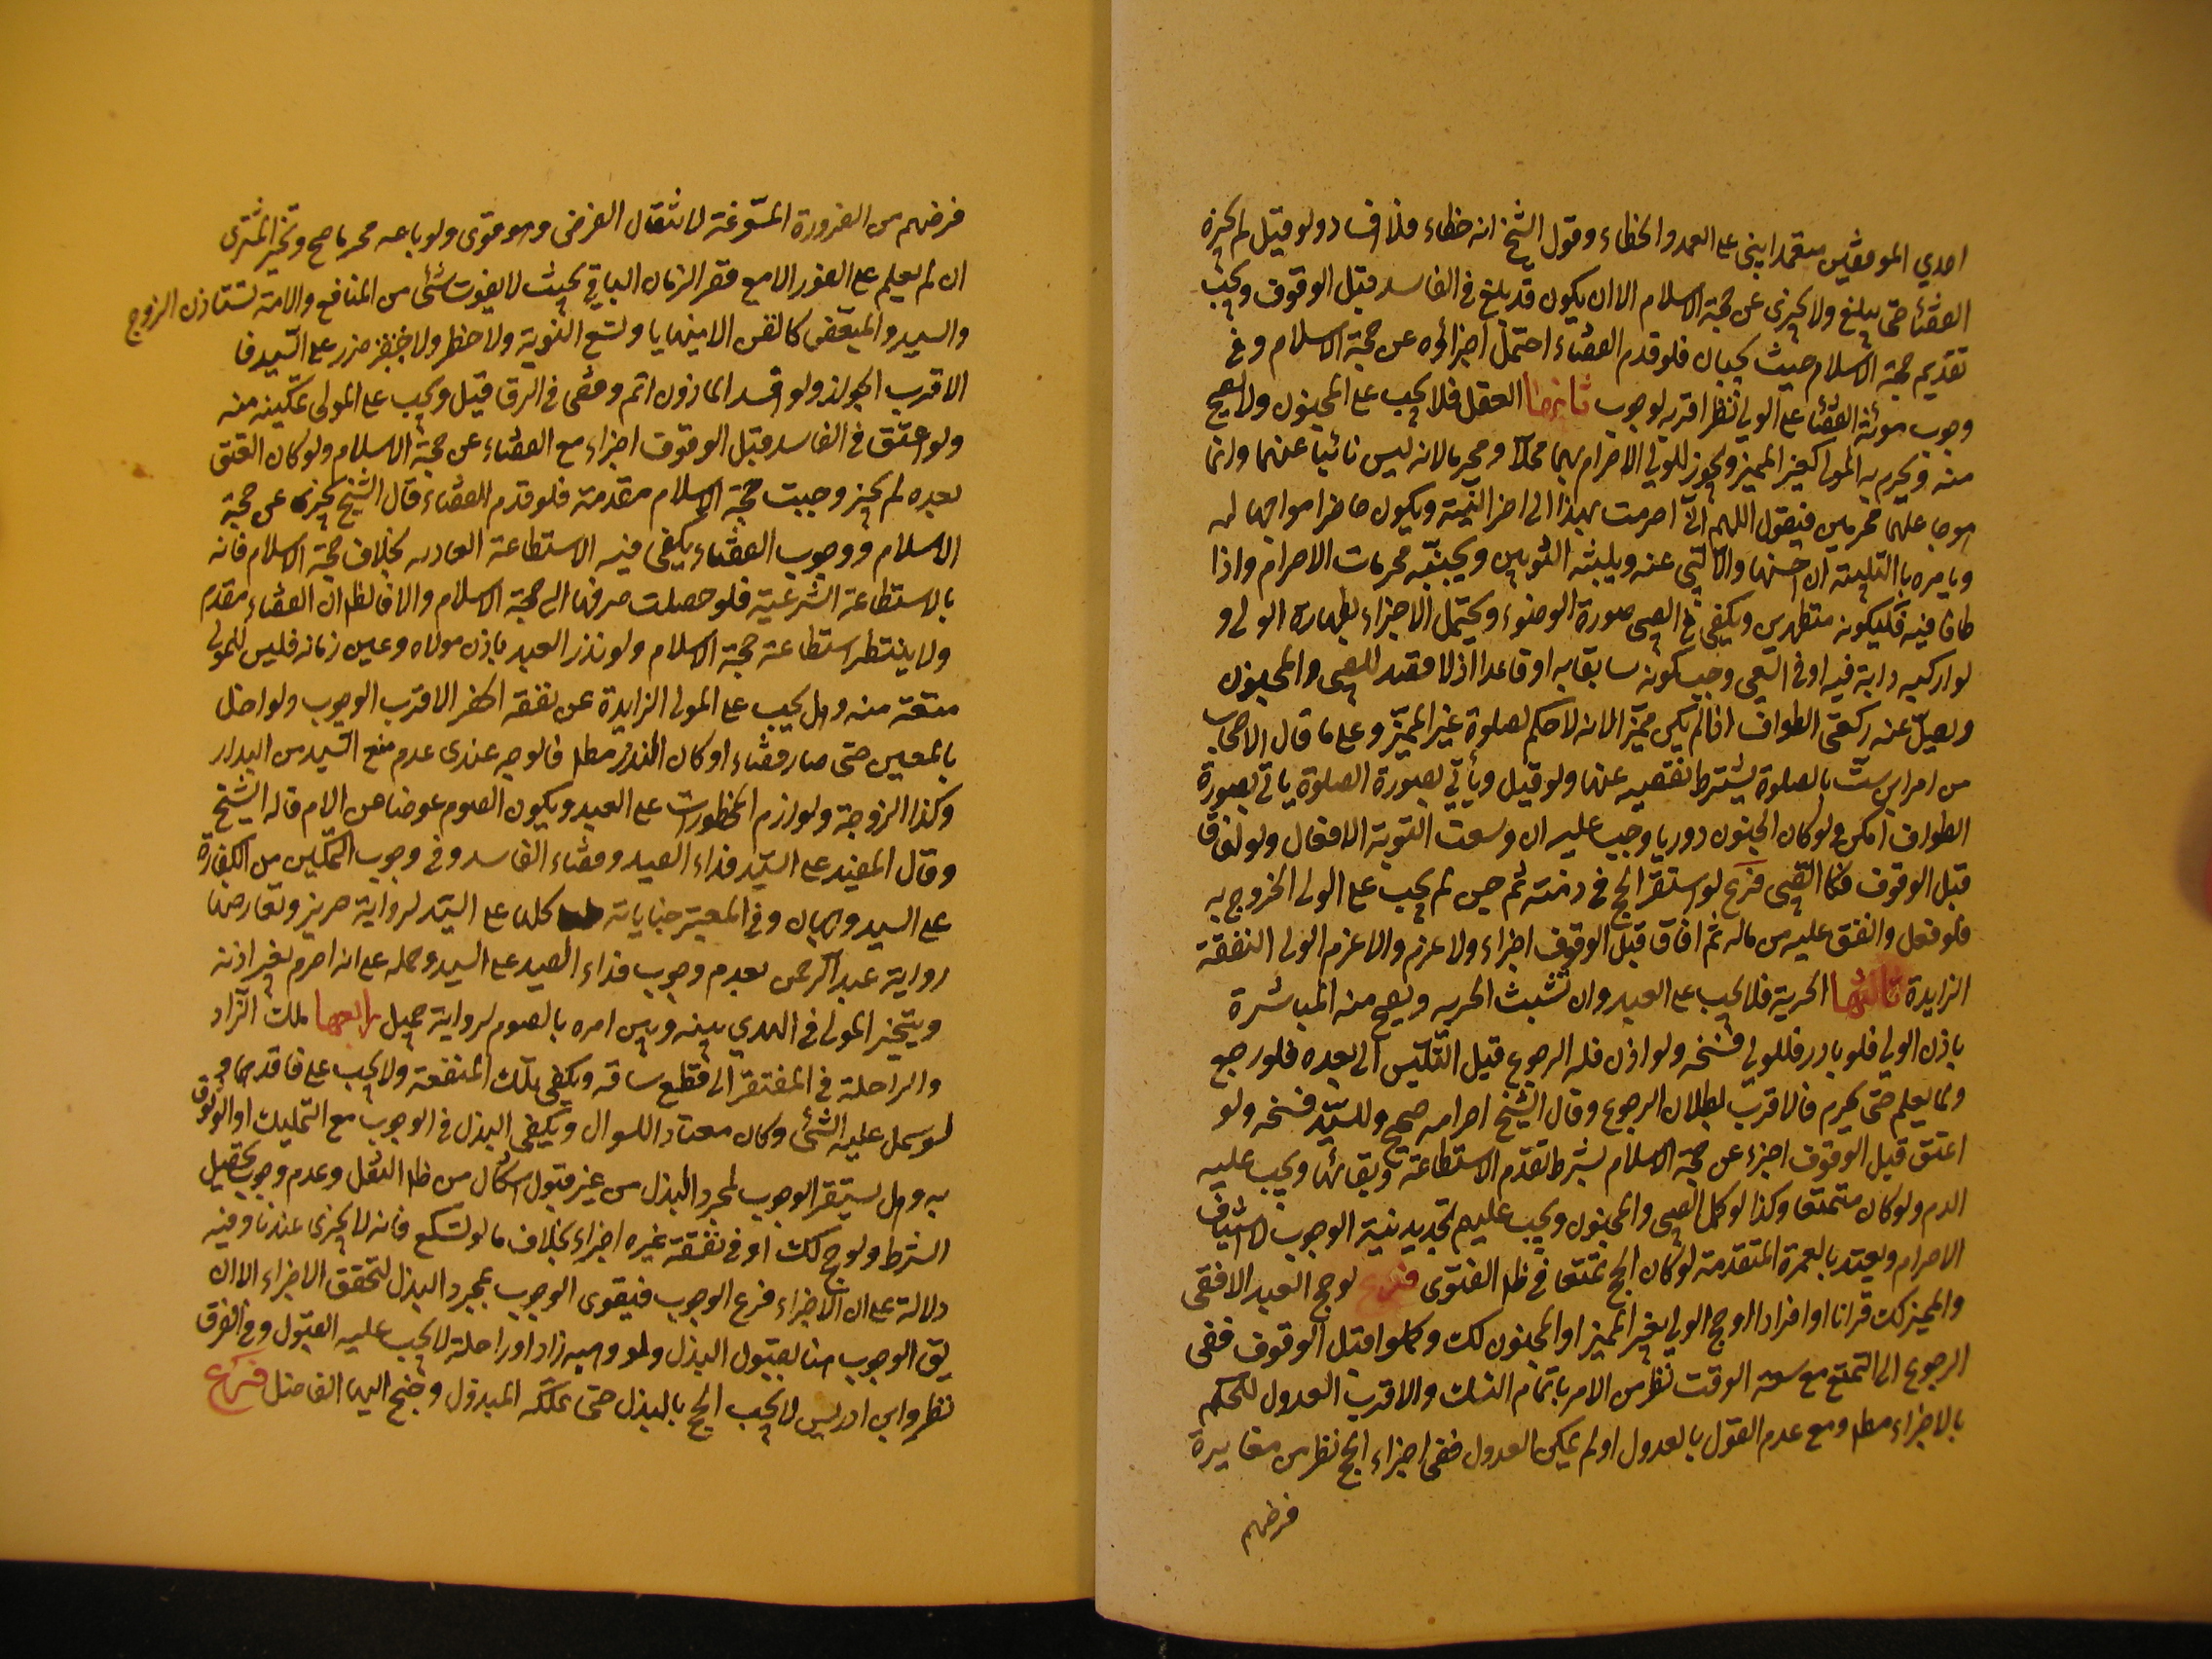 احدي الموقفين متعمدا بنى على العمد والخطاء وقول الشيخ انه خطاء فلا فساد ولو قيل لم يجزه
القضاء حتى يبلغ ولا يجزى عن حجة الاسلام الا ان يكون قد بلغ في الفاسد قبل الوقوف ويجب
تقديم حجة الاسلام حيث يجبان فلو قدم القضاء احتمل اجزاؤه عن حجة الاسلام وفي
وجوب مؤنة القضاء على الولي نظر اقربه الوجوب ثانيها العقل فلا يجب على المجنون ولا يصح
منه ويحرم به الولي كغير المميز ويجوز للولي الاحرام بهما محلا ومحرما لانه ليس نائبا عنهما وانما
هو جاعلهما محرمين فيقول اللهم انى احرمت بهذا الى اخر النية ويكون حاضرا مواجها له
ويامره بالتلبية ان احسنها والا لبى عنه ويلبسه الثوبين ويجنبه محرمات الاحرام واذا
طاف به فليكونا متطهرين ويكفى في الصبى صورة الوضوء ويحتمل الاجزاء بطهارة الولى و
لو اركبه دابة فيه او فى السعى وجب كونه سائقا به او قاعدا اذ لا قصد للصبى والمجنون
ويصلى عنه ركعتى الطواف اذا لم يكن مميزا لانه لا حكم لصلوة غير المميز وعلى ما قال الاصحاب
من امر ابن ست بالصلوة يشترط نقصه عنها ولو قيل ويأتي بصورة الصلوة ياتى بصورة
الطواف امكن ولو كان الجنون دوريا وجب عليه ان وسعت النوبة الافعال ولو افاق
قبل الوقوف فكا الصبى فرع لو استقر الحج فى ذمته ثم جن لم يجب على الولى الخروج به
فلو فعل وانفق عليه من ماله ثم افاق قبل الوقوف اجزاء ولا غرم والا غرم الولى النفقة
الزايدة ثالثها الحرية فلا يجب على العبد وان تشبث الحريه ويصح منه المباشرة
باذن الولى فلو بادر فللولى فسخه ولو اذن فله الرجوع قبل التلبس لا بعده فلو رجع
ولما يعلم حتى يحرم فالاقرب بطلان الرجوع وقال الشيخ احرامه صحيح وللسيد فسخه ولو
اعتق قبل الوقوف اجزء عن حجة الاسلام بشرط تقدم الاستطاعة وبقائها ويجب عليه
الدم ولو كان متمتعا وكذا لو كمل الصبى والمجنون ويجب عليهم تجديد نية الوجوب لا استيناف
الاحرام ويعتد بالعمرة المتقدمة لو كان الحج تمتعا في ظ الفتوى فرع لو حج العبد الافقى
والمميز كك قرانا او افرادا او حج الولى بغير المميز او المجنون كك وكملوا قبل الوقوف ففى
الرجوع الى التمتع مع سعة الوقت نظر من الامر باتمام النسك والاقرب العدول للحكم
بالاجزاء مطـ ومع عدم القول بالعدول او لم يمكن العدول ففى اجزاء الحج نظر من مغايرة
فرضهم
فرضهم من الضرورة المسوغة لانتقال الفرض وهو قوى ولو باعه محرما صح وتخير المشترى
ان لم يعلم على الفور الا مع قصر الزمان الباقي بحيث لا يفوت شئ من المنافع والامة تستاذن الزوج
والسيد والمبعض كالقن الا مع المهاياة وتسع النوبة ولا خطر ولا ضرر على السيد فا
الاقرب الجواز ولو افسد الماذون اتم وقضى فى الرق قيل ويجب على المولى تمكينه منه
ولو اعتق فى الفاسد قبل الوقوف اجزاء مع القضاء عن حجة الاسلام ولو كان العتق
بعده لم يجز وجبت حجة الاسلام مقدمة فلو قدم القضاء قال الشيخ يجزى عن حجة
الاسلام ووجوب القضاء يكفى فيه الاستطاعة العاديه بخلاف حجة الاسلام فانه
بالاستطاعة الشرعية فلو حصلت صرفها الى حجة الاسلام والا فالظ ان القضاء مقدم
ولا ينتظر استطاعة حجة الاسلام ولو نذر العبد باذن مولاه وعين زمانه فليس للمولى
منعه منه وهل يجب على المولى الزايدة عن نفقة الحضر الاقرب الوجوب ولو اخل
بالمعين حتى صار قضاء او كان النذر مطـ فالوجه عندى عدم منع السيد من البدار
وكذا الزوجة ولوازم المحظورات على العبد ويكون الصوم عوضا من الدم قاله الشيخ
وقال المفيد على السيد فداء الصيد وقضاء الفاسد وفى وجوب التمكين من الكفارة
على السيد وجهان وفى المعتبر جناياته كلها على السيد لرواية حريز وتعارضها
رواية عبد الرحمن بعدم وجوب فداء الصيد على السيد وحمله على انه احرم بغير اذنه
ويتخير المولى فى الهدي بينه وبين امره بالصوم لرواية جميل رابعها ملك الزاد
والراحلة فى المفتقر الى قطع مسافة ويكفى ملك المنفعة ولا يجب على فاقدهما و
لو سهل عليه المشى وكان معتادا للسوال ويكفى البذل فى الوجوب مع التمليك او الوثوق
به وهل يستقر الوجوب بمجرد البذل من غير قبول اشكال من ظا النقل وعدم وجوب تحصيل
الشرط ولو حج كك او فى نفقة غيره اجزاء بخلاف ما لو تسكع فانه لا يجزى عندنا وفيه
دلالة على ان الاجزاء فرع الوجوب فيقوى الوجوب بمجرد البذل لتحقق الاجزاء الا ان
يق الوجوب هنا بقبول البذل ولو وهبه زادا وراحلة لا يجب عليه القبول وفى الفرق
نظر وابن ادريس لا يجب الحج بالبذل حتى يملكه المبذول وجنح اليه الفاضل فرع